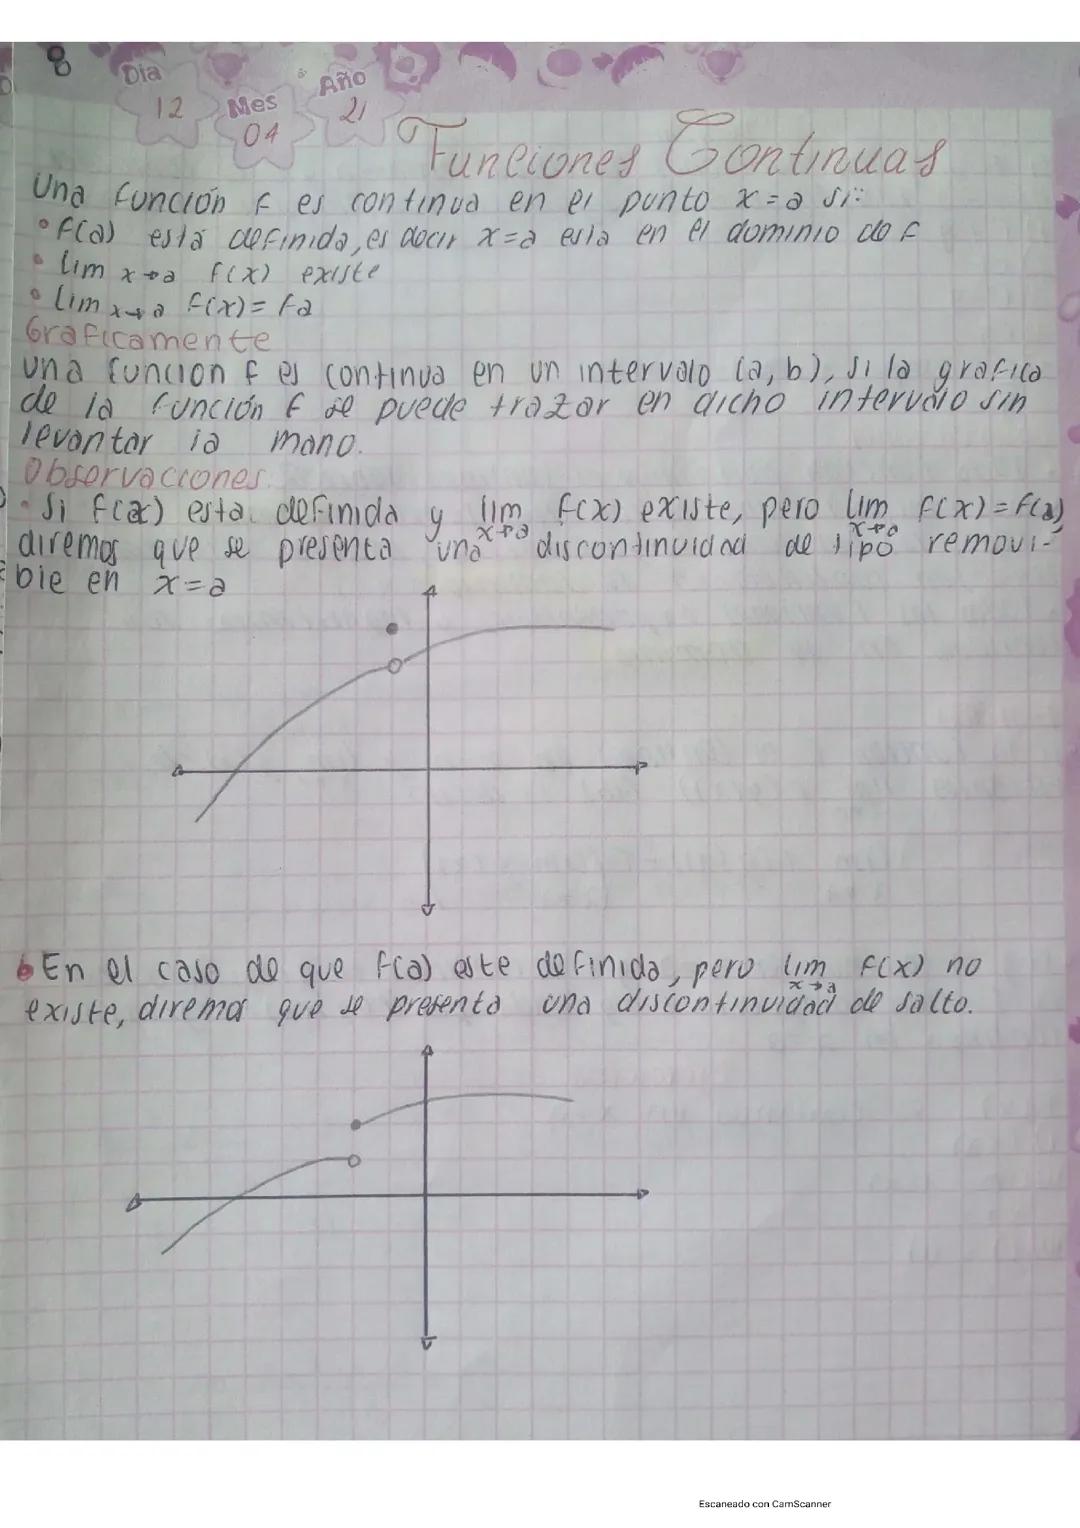 8
Dia
12
Mes
04
Año
21
Funciones Continuas
Una función f es continua en el punto x=a si:
• f(a) está definida, es decir x=a esta en el dominio de f
• lim x→a f(x) existe
• lim x→a f(x)= fa
Graficamente
una funcion f es continua en un intervalo (a,b), si la grafica
de la función f se puede trazar en dicho intervalo sin
levantar la mano.
Observaciones.
• Si f(a) esta definida y lim x→a f(x) existe, pero lim x→a f(x)=f(a)
diremos que se presenta una discontinuidad de tipo removi-
ble en x=a
• En el caso de que f(a) este definida, pero lim x→a f(x) no
existe, diremos que se presenta una discontinuidad de salto.
Escaneado con CamScanner